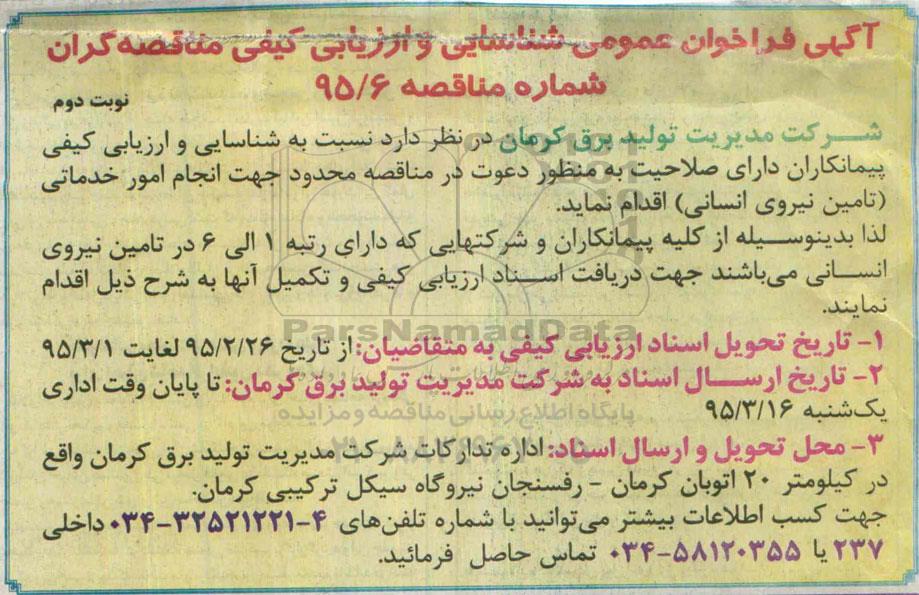 آگهی فراخوان عمومی شناسایی و ارزیابی کیفی مناقصه‌گران
شماره مناقصه ۹۵/۶
نوبت دوم
شرکت مدیریت تولید برق کرمان در نظر دارد نسبت به شناسایی و ارزیابی کیفی
پیمانکاران دارای صلاحیت به منظور دعوت در مناقصه محدود جهت انجام امور خدماتی
(تامین نیروی انسانی) اقدام نماید.
لذا بدینوسیله از کلیه پیمانکاران و شرکتهایی که دارای رتبه ۱ الی ۶ در تامین نیروی
انسانی می‌باشند جهت دریافت اسناد ارزیابی کیفی و تکمیل آنها به شرح ذیل اقدام
نمایند.
ParsNamadData
۱- تاریخ تحویل اسناد ارزیابی کیفی به متقاضیان: از تاریخ ۹۵/۲/۲۶ لغایت ۹۵/۳/۱
۲- تاریخ ارسال اسناد به شرکت مدیریت تولید برق کرمان: تا پایان وقت اداری
یک‌شنبه ۹۵/۳/۱۶
پایگاه اطلاع رسانی مناقصه و مزایده
۳- محل تحویل و ارسال اسناد: اداره تدارکات شرکت مدیریت تولید برق کرمان واقع
در کیلومتر ۲۰ اتوبان کرمان - رفسنجان نیروگاه سیکل ترکیبی کرمان.
جهت کسب اطلاعات بیشتر می‌توانید با شماره تلفن‌های ۴-۳۲۵۲۱۲۲۱-۰۳۴ داخلی
۲۳۷ یا ۵۸۱۲۰۳۵۵-۰۳۴ تماس حاصل فرمائید.